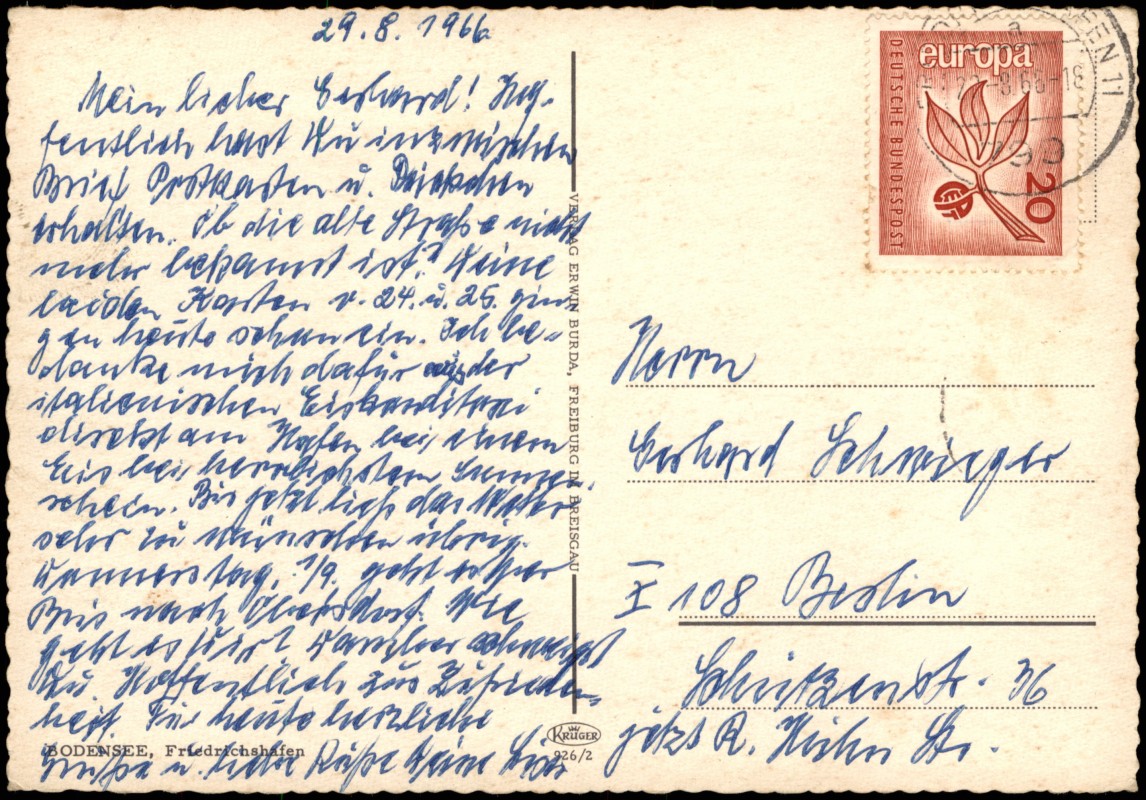 29.8.1966
Mein lieber Gerhard! Hof-
fentlich hast Du inzwischen
Brief Postkarten u. Päckchen
erhalten. Ob die alte Straße nicht
mehr bekannt ist? Deine
beiden Karten v. 24. u. 25. gin-
gen heute schon ein. Ich be-
danke mich dafür aus der
italienischen Eiskonditorei
direkt am Hafen bei einem
Eis bei herrlichstem Sonnen-
schein. Bis jetzt ließ das Wetter
sehr zu wünschen übrig.
Donnerstag, 1/9. geht es per
Bus nach Oberstdorf. Wie
geht es Dir? Darüber schweigst
Du. Hoffentlich zur Zufrieden-
heit. Für heute herzliche
Grüße u. liebe Küsse Deine
BODENSEE, Friedrichshafen
VERLAG ERWIN BURDA, FREIBURG IM BREISGAU
KRÜGER
926/2
europa
DEUTSCHE BUNDESPOST
20
CEPT
790
Herrn
Gerhard Schwieger
X 108 Berlin
Schützenstr. 36
jetzt R. Str.